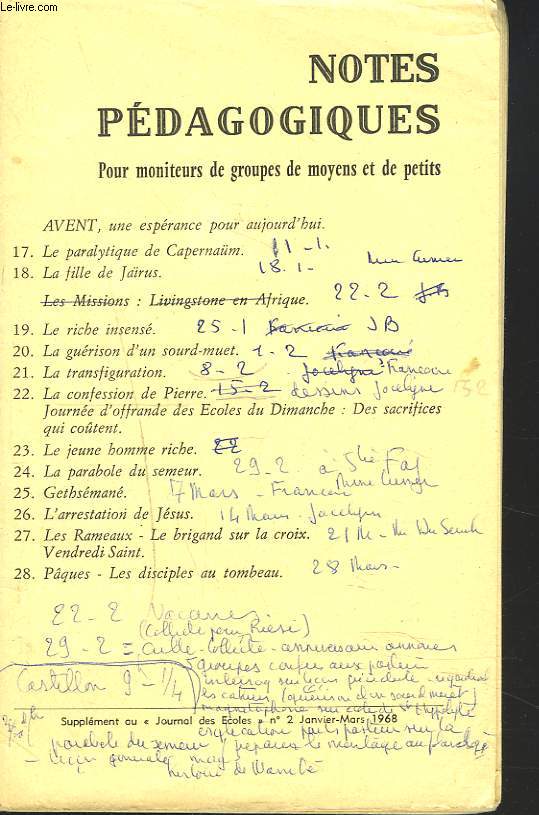 Le-livre.com
NOTES
PÉDAGOGIQUES
Pour moniteurs de groupes de moyens et de petits
AVENT, une espérance pour aujourd'hui.
17. Le paralytique de Capernaüm. 11 - 1.
18. La fille de Jaïrus. 18. 1 -
Les Missions : Livingstone en Afrique. 22 - 2 JB
19. Le riche insensé. 25 - 1 Francoise JB
20. La guérison d'un sourd-muet. 1 - 2
21. La transfiguration. 8 - 2 Jocelyne Francoise
22. La confession de Pierre. 15 - 2 dessins Jocelyne 15 2
Journée d'offrande des Ecoles du Dimanche : Des sacrifices
qui coûtent.
23. Le jeune homme riche. 22
24. La parabole du semeur. 29 - 2 à Ste Foy
25. Gethsémané. 7 Mars - Francoise
26. L'arrestation de Jésus. 14 Mars - Jocelyne
27. Les Rameaux - Le brigand sur la croix. 21 M -
Vendredi Saint.
28. Pâques - Les disciples au tombeau. 28 Mars -
22 - 2 Vacances
(Collecte pour Riesi)
29 - 2 = Culte - Collecte - anniversaire
groupes
les cahiers (guérison d'un sourd muet)
Castillon 9 - 1/4
magnétophone
Supplément au « Journal des Ecoles » n° 2 Janvier-Mars 1968
explication par le pasteur sur la
parabole du semeur préparer le montage
histoire de